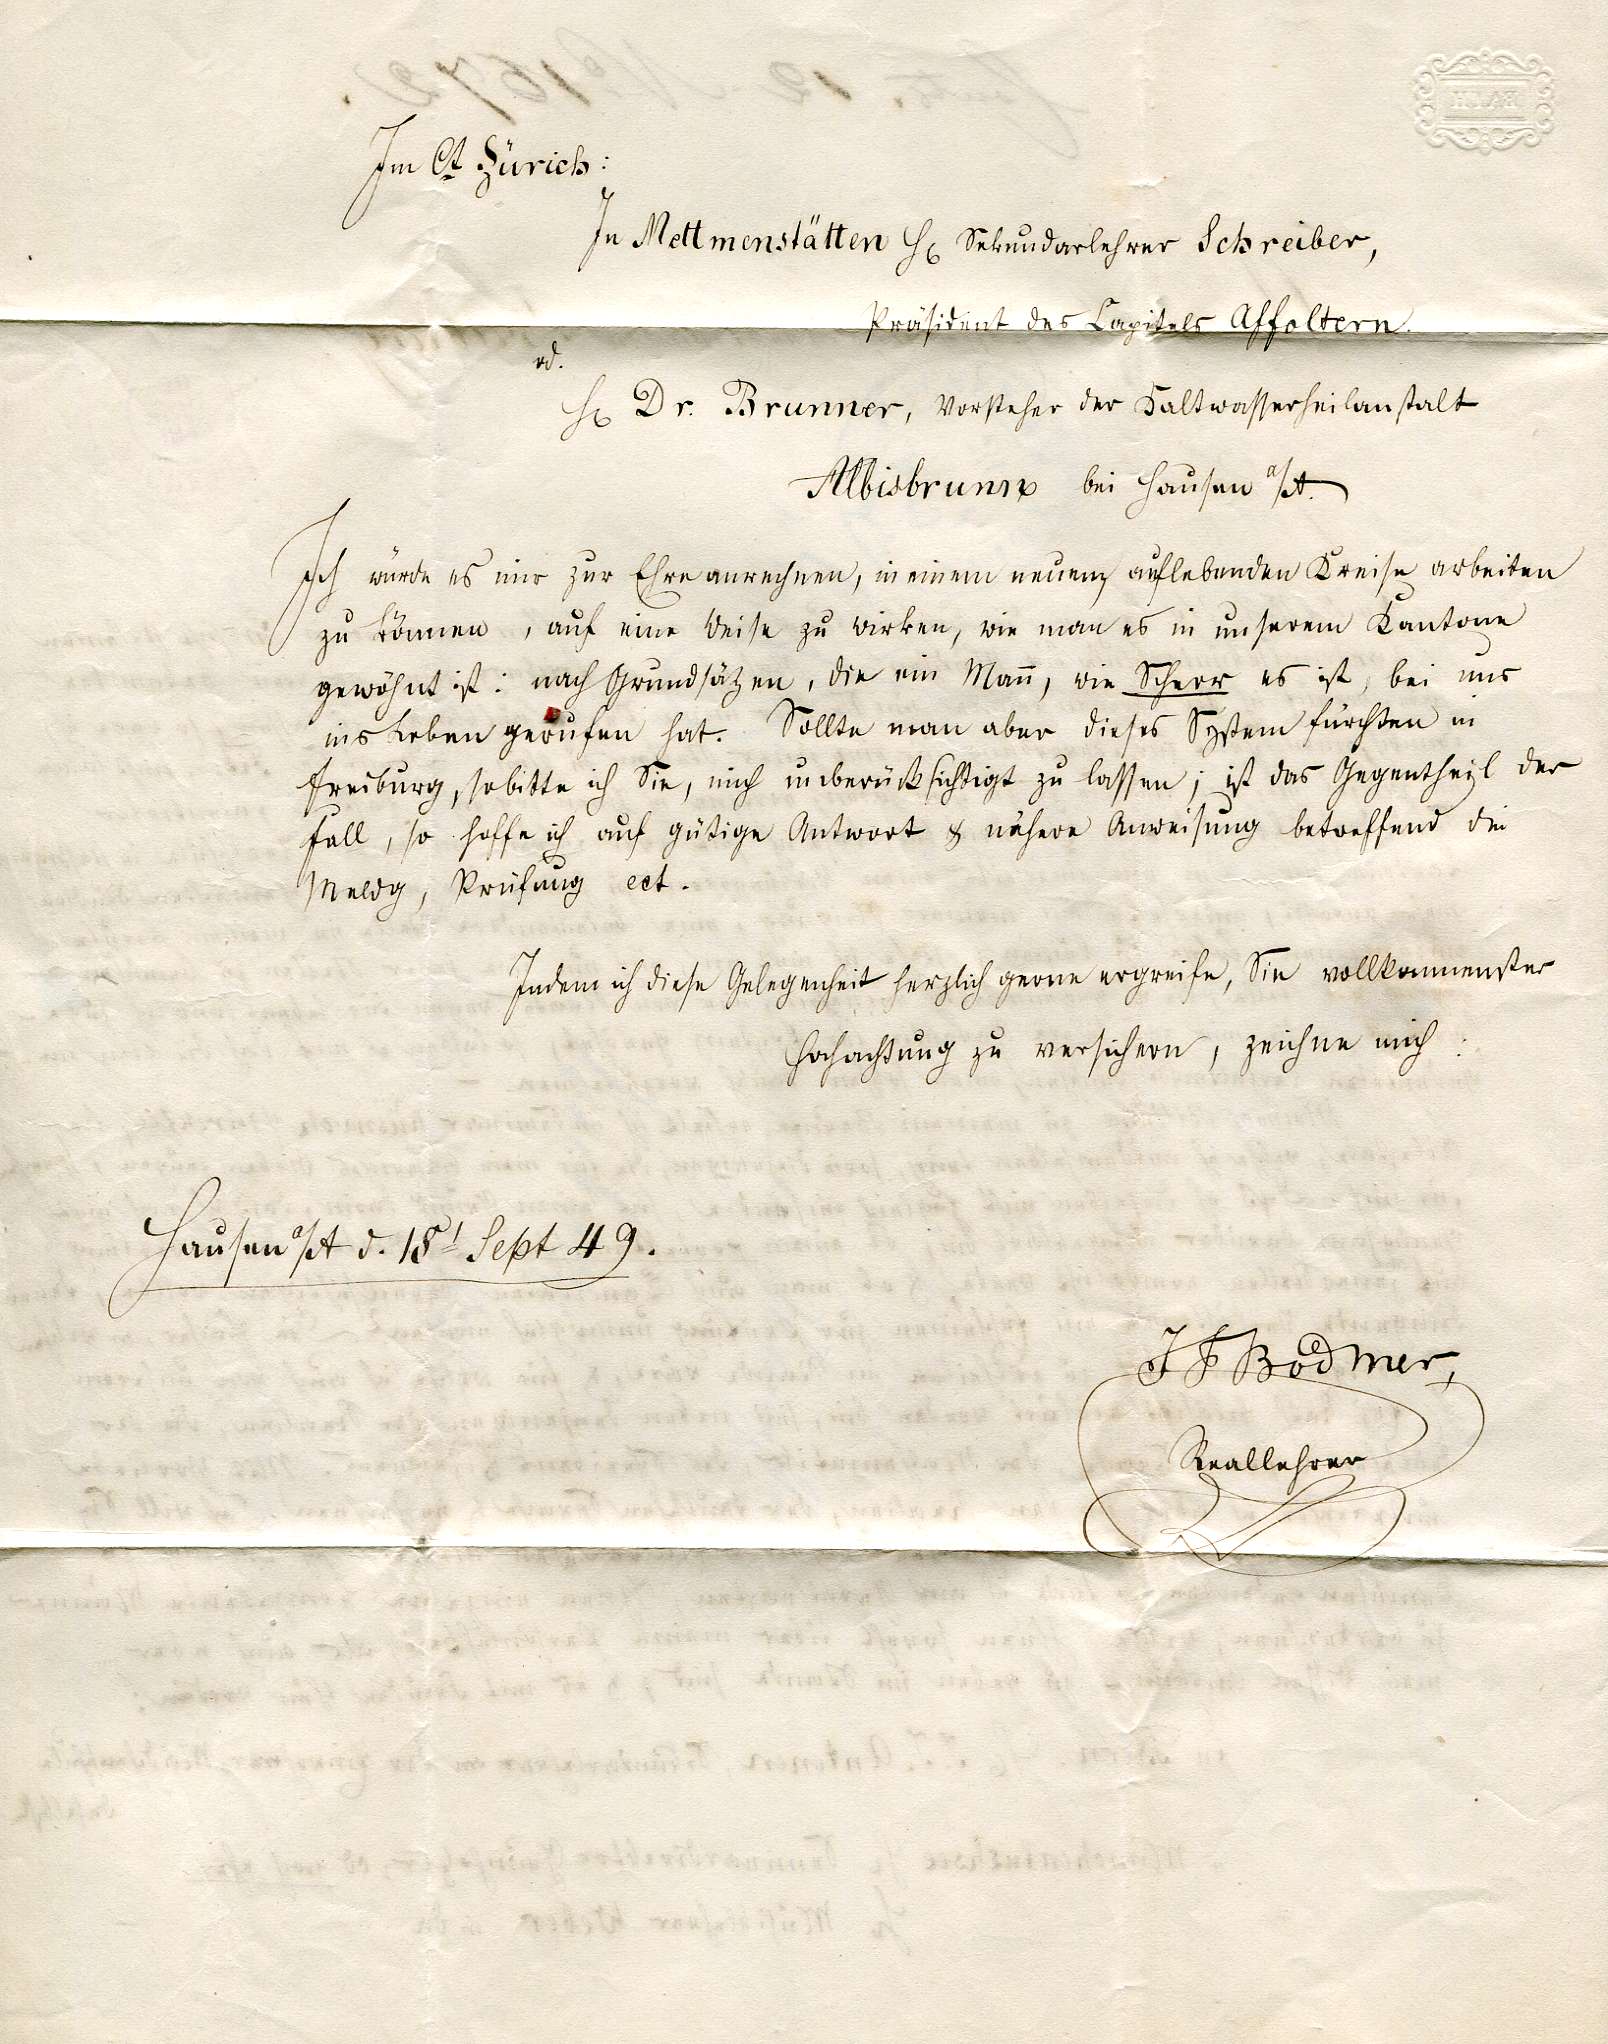 Im Ct. Zürich:
In Mettmenstätten H. Sekundarlehrer Schreiber,
Präsident des Capitels Affoltern.
od.
H. Dr. Brunner, Vorsteher der Kaltwasserheilanstalt
Albisbrunn bei Hausen a/A.
Ich würde es mir zur Ehre anrechnen, in einem neuen, auflebenden Kreise arbeiten
zu können, auf eine Weise zu wirken, wie man es in unserem Kantone
gewöhnt ist: nach Grundsätzen, die ein Man̄, wie Scherr es ist, bei uns
ins Leben gerufen hat. Sollte man aber dieses System fürchten in
Freiburg, so bitte ich Sie, mich unberücksichtigt zu lassen; ist das Gegentheil der
Fall, so hoffe ich auf gütige Antwort & nähere Anweisung betreffend die
Meldg, Prüfung ect.
Indem ich diese Gelegenheit herzlich gerne ergreife, Sie vollkommenster
Hochachtung zu versichern, zeichne mich:
Hausen a/A d. 18t Sept 49.
J F Bodmer,
Reallehrer